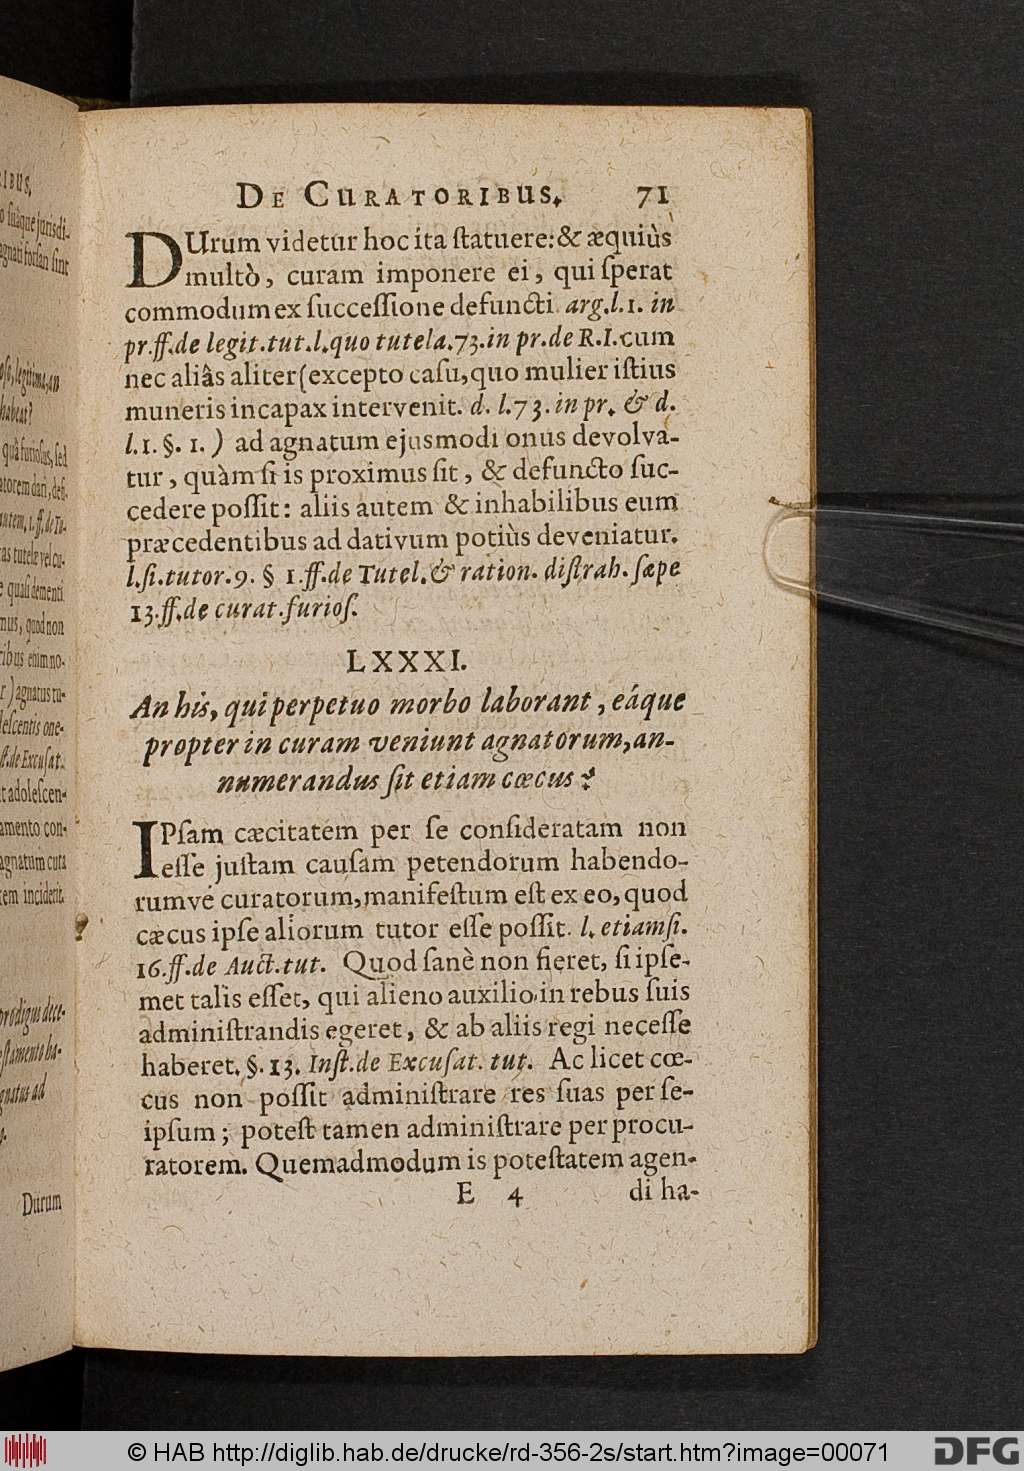 DE CURATORIBUS. 71
DUrum videtur hoc ita ſtatuere: & æquiùs
multò, curam imponere ei, qui ſperat
commodum ex ſucceſſione defuncti arg.l.1. in
pr.ff.de legit.tut.l.quo tutela.73.in pr.de R.I.cum
nec aliâs aliter (excepto caſu, quo mulier iſtius
muneris incapax intervenit. d. l.73. in pr. & d.
l.1. §. 1.) ad agnatum ejusmodi onus devolva-
tur, quàm ſi is proximus ſit, & defuncto ſuc-
cedere poſſit: aliis autem & inhabilibus eum
præcedentibus ad dativum potiùs deveniatur.
l.ſi.tutor.9. § 1.ff.de Tutel.& ration. diſtrah. ſæpe
13.ff.de curat.furioſ.
LXXXI.
An his, qui perpetuo morbo laborant, eáque
propter in curam veniunt agnatorum, an-
numerandus ſit etiam cœcus?
IPſam cæcitatem per ſe conſideratam non
eſſe juſtam cauſam petendorum habendo-
rumvé curatorum, manifeſtum eſt ex eo, quod
cæcus ipſe aliorum tutor eſſe poſſit. l. etiamſi.
16.ff.de Auct.tut. Quod ſanè non fieret, ſi ipſe-
met talis eſſet, qui alieno auxilio in rebus ſuis
adminiſtrandis egeret, & ab aliis regi neceſſe
haberet. §. 13. Inſt.de Excuſat. tut. Ac licet cœ-
cus non poſſit adminiſtrare res ſuas per ſe-
ipſum; poteſt tamen adminiſtrare per procu-
ratorem. Quemadmodum is poteſtatem agen-
E 4 di ha-
RIBUS.
ſuàque jurisdi-
agnati forſan ſint
habeat?
quâ furioſus, ſed
quaſi dementi
mus, quod non
ribus enim no-
r) agnatus tu-
leſcentis one-
ſt.de Excuſat.
t adoleſcen-
amento con-
agnatum cura
tem inciderit.
prodigus dece-
eſtamento ha-
gnatus ad
Durum
© HAB http://diglib.hab.de/drucke/rd-356-2s/start.htm?image=00071
DFG